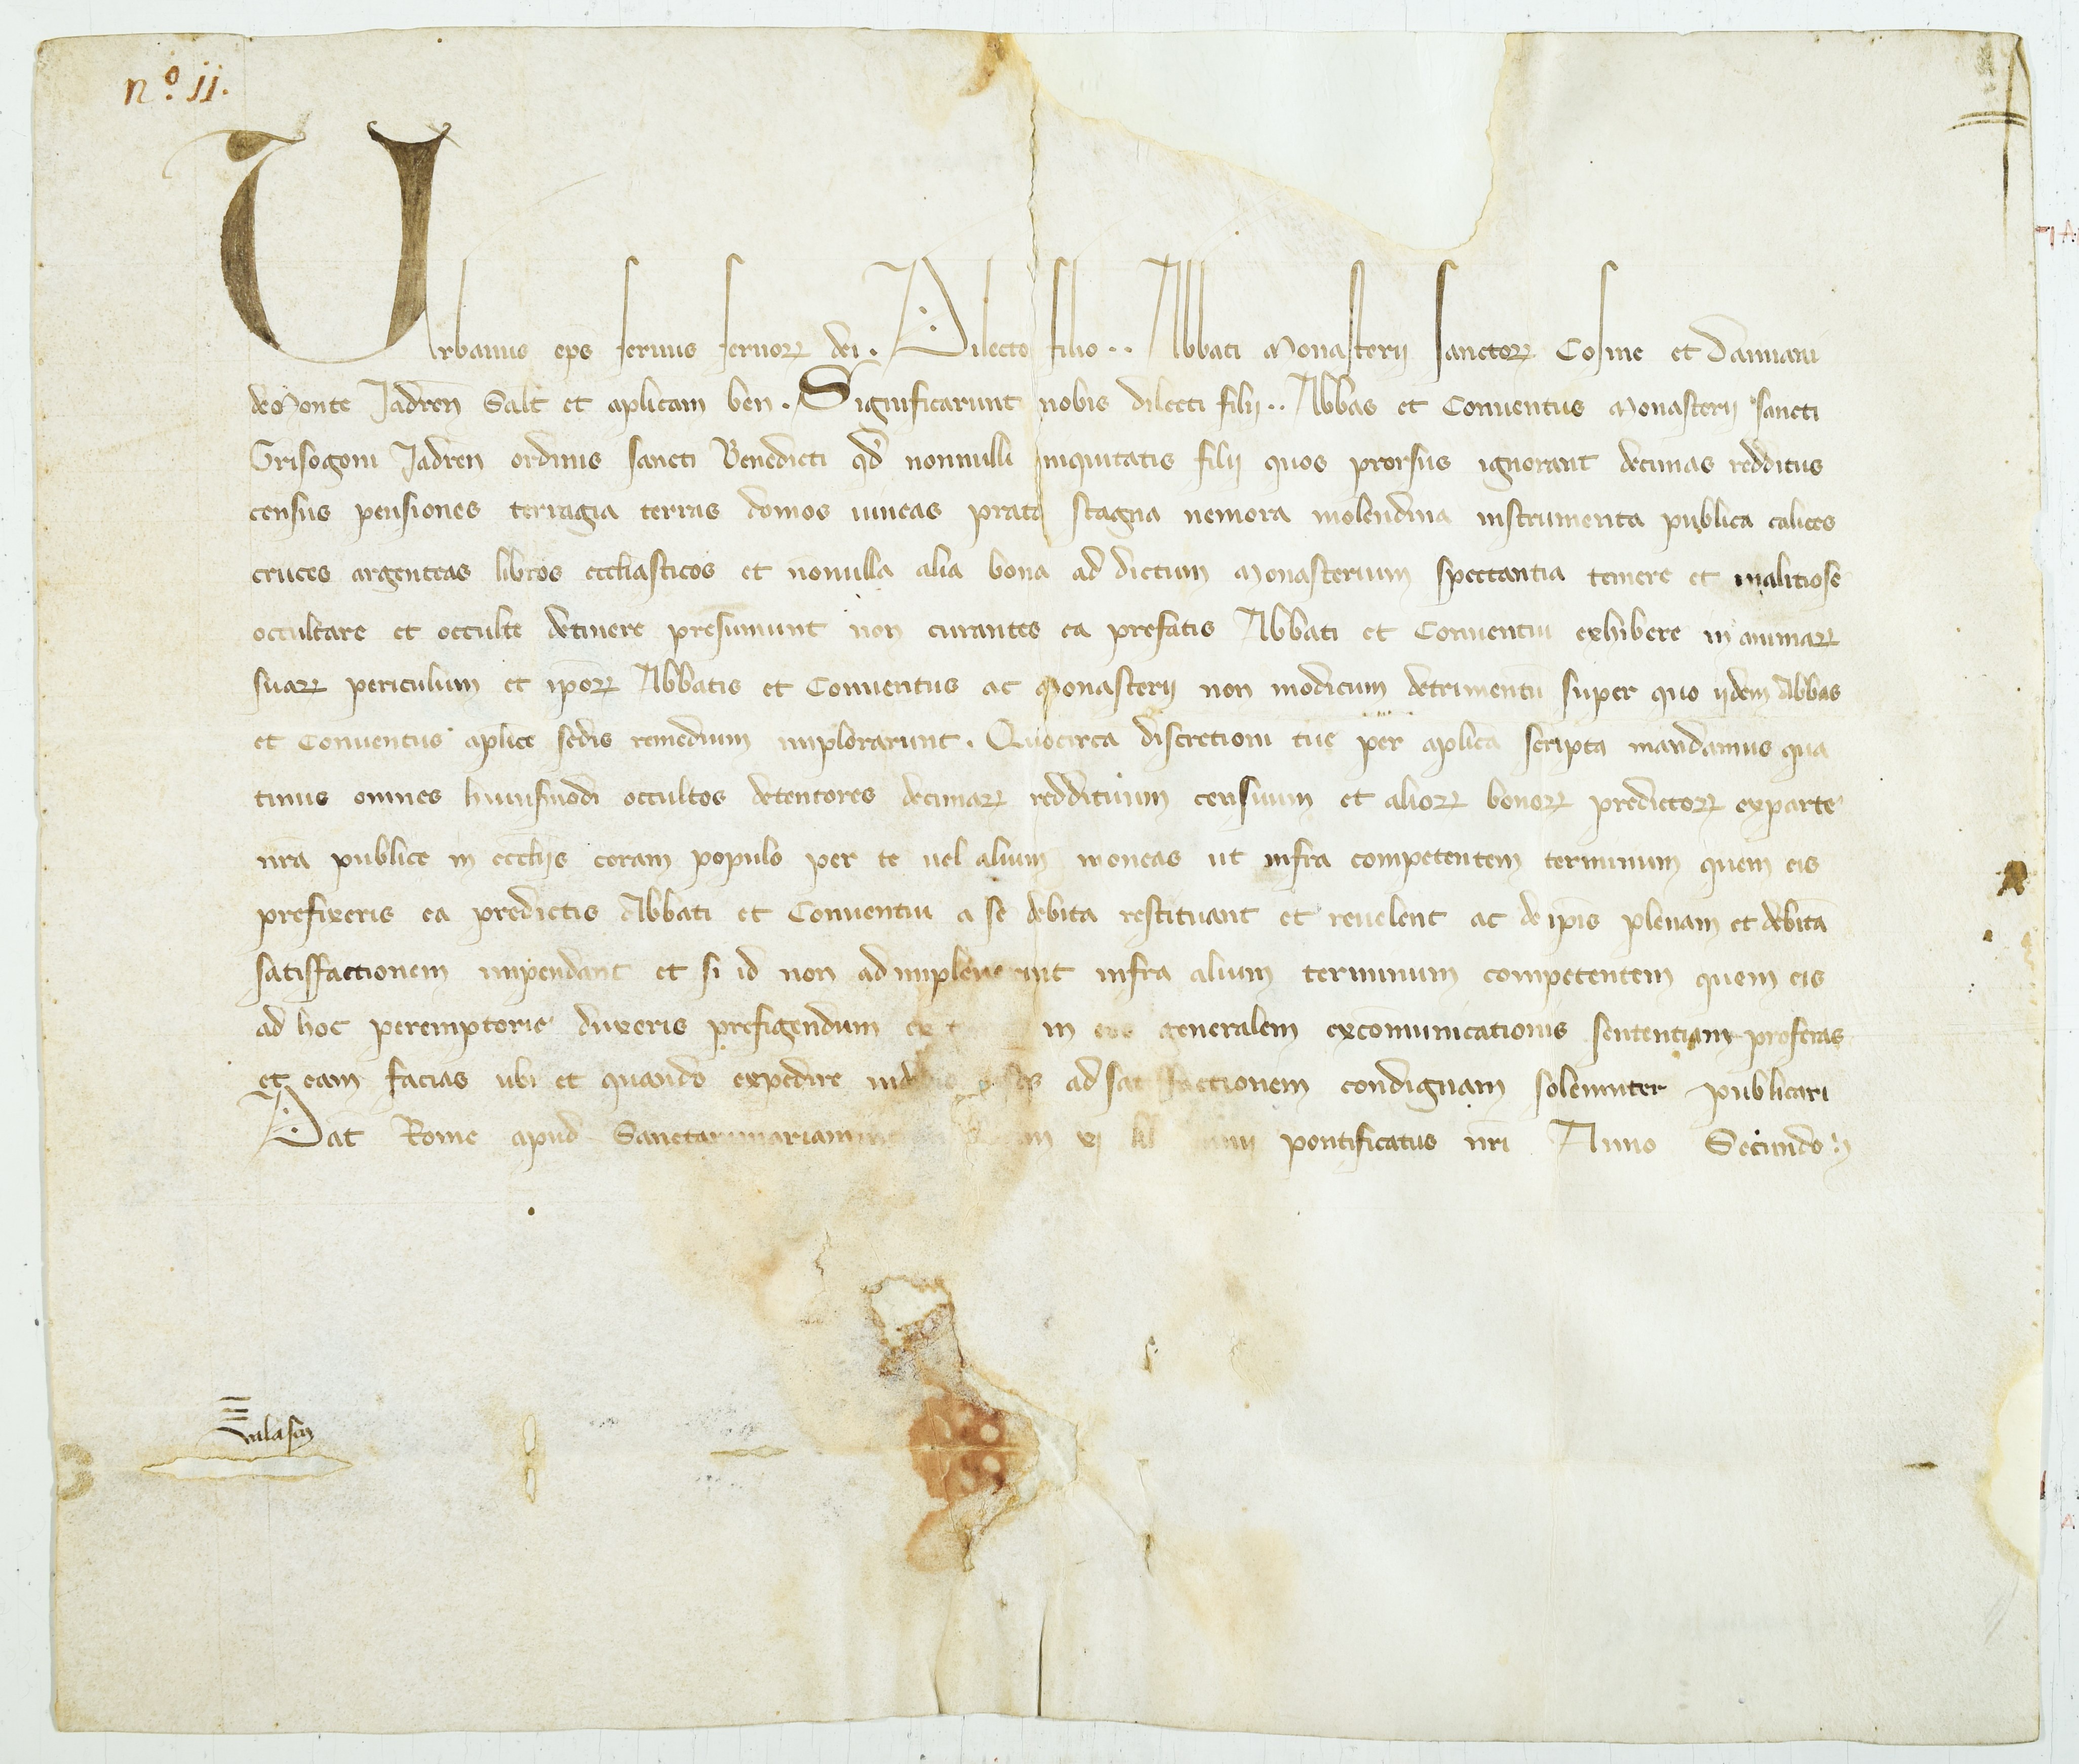 nº. 11.
Urbanus ep̄s seruus seruoꝝ dei. Dilecto filio .. Abbati Monasterij sanctoꝝ Cosme et Damiani
de Monte Jadren̄ Salt̄ et aplicam ben̄. Significarunt nobis dilecti filij .. Abbas et Conuentus Monasterij sancti
Grisogoni Jadren̄ ordinis sancti Benedicti qd̄ nonnulli iniquitatis filij quos prorsus ignorant decimas redditus
census pensiones terragia terras domos uineas prata stagna nemora molendina instrumenta publica calices
cruces argenteas libros eccl̄iasticos et nōnulla alia bona ad dictum Monasterium spectantia temere et malitiose
occultare et occulte detinere presumunt non curantes ea prefatis Abbati et Conuentui exhibere in animaꝝ
suaꝝ periculum et ip̄oꝝ Abbatis et Conuentus ac Monasterij non modicum detrimentū super quo ijdem Abbas
et Conuentus aplice sedis remedium implorarunt. Quocirca discretioni tue per aplica scripta mandamus qua
tinus omnes huiusmodi occultos detentores decimaꝝ reddituum censuum et alioꝝ bonoꝝ predictoꝝ ex parte
nr̄a publice in eccl̄ijs coram populo per te uel alium moneas ut infra competentem terminum quem eis
prefixeris ea predictis Abbati et Conuentui a se debita restituant et reuelent ac de ip̄is plenam et debitā
satisffactionem impendant et si id non adimpleuerint infra alium terminum competentem quem eis
ad hoc peremptorie duxeris prefigendum ex in eos generalem excōmunicationis sententiam proferas
et eam facias ubi et quando expedire ad satisffactionem condignam solemniter publicari
Dat̄ Rome apud Sanctammariam xj kl̄ pontificatus nr̄i Anno Secundo